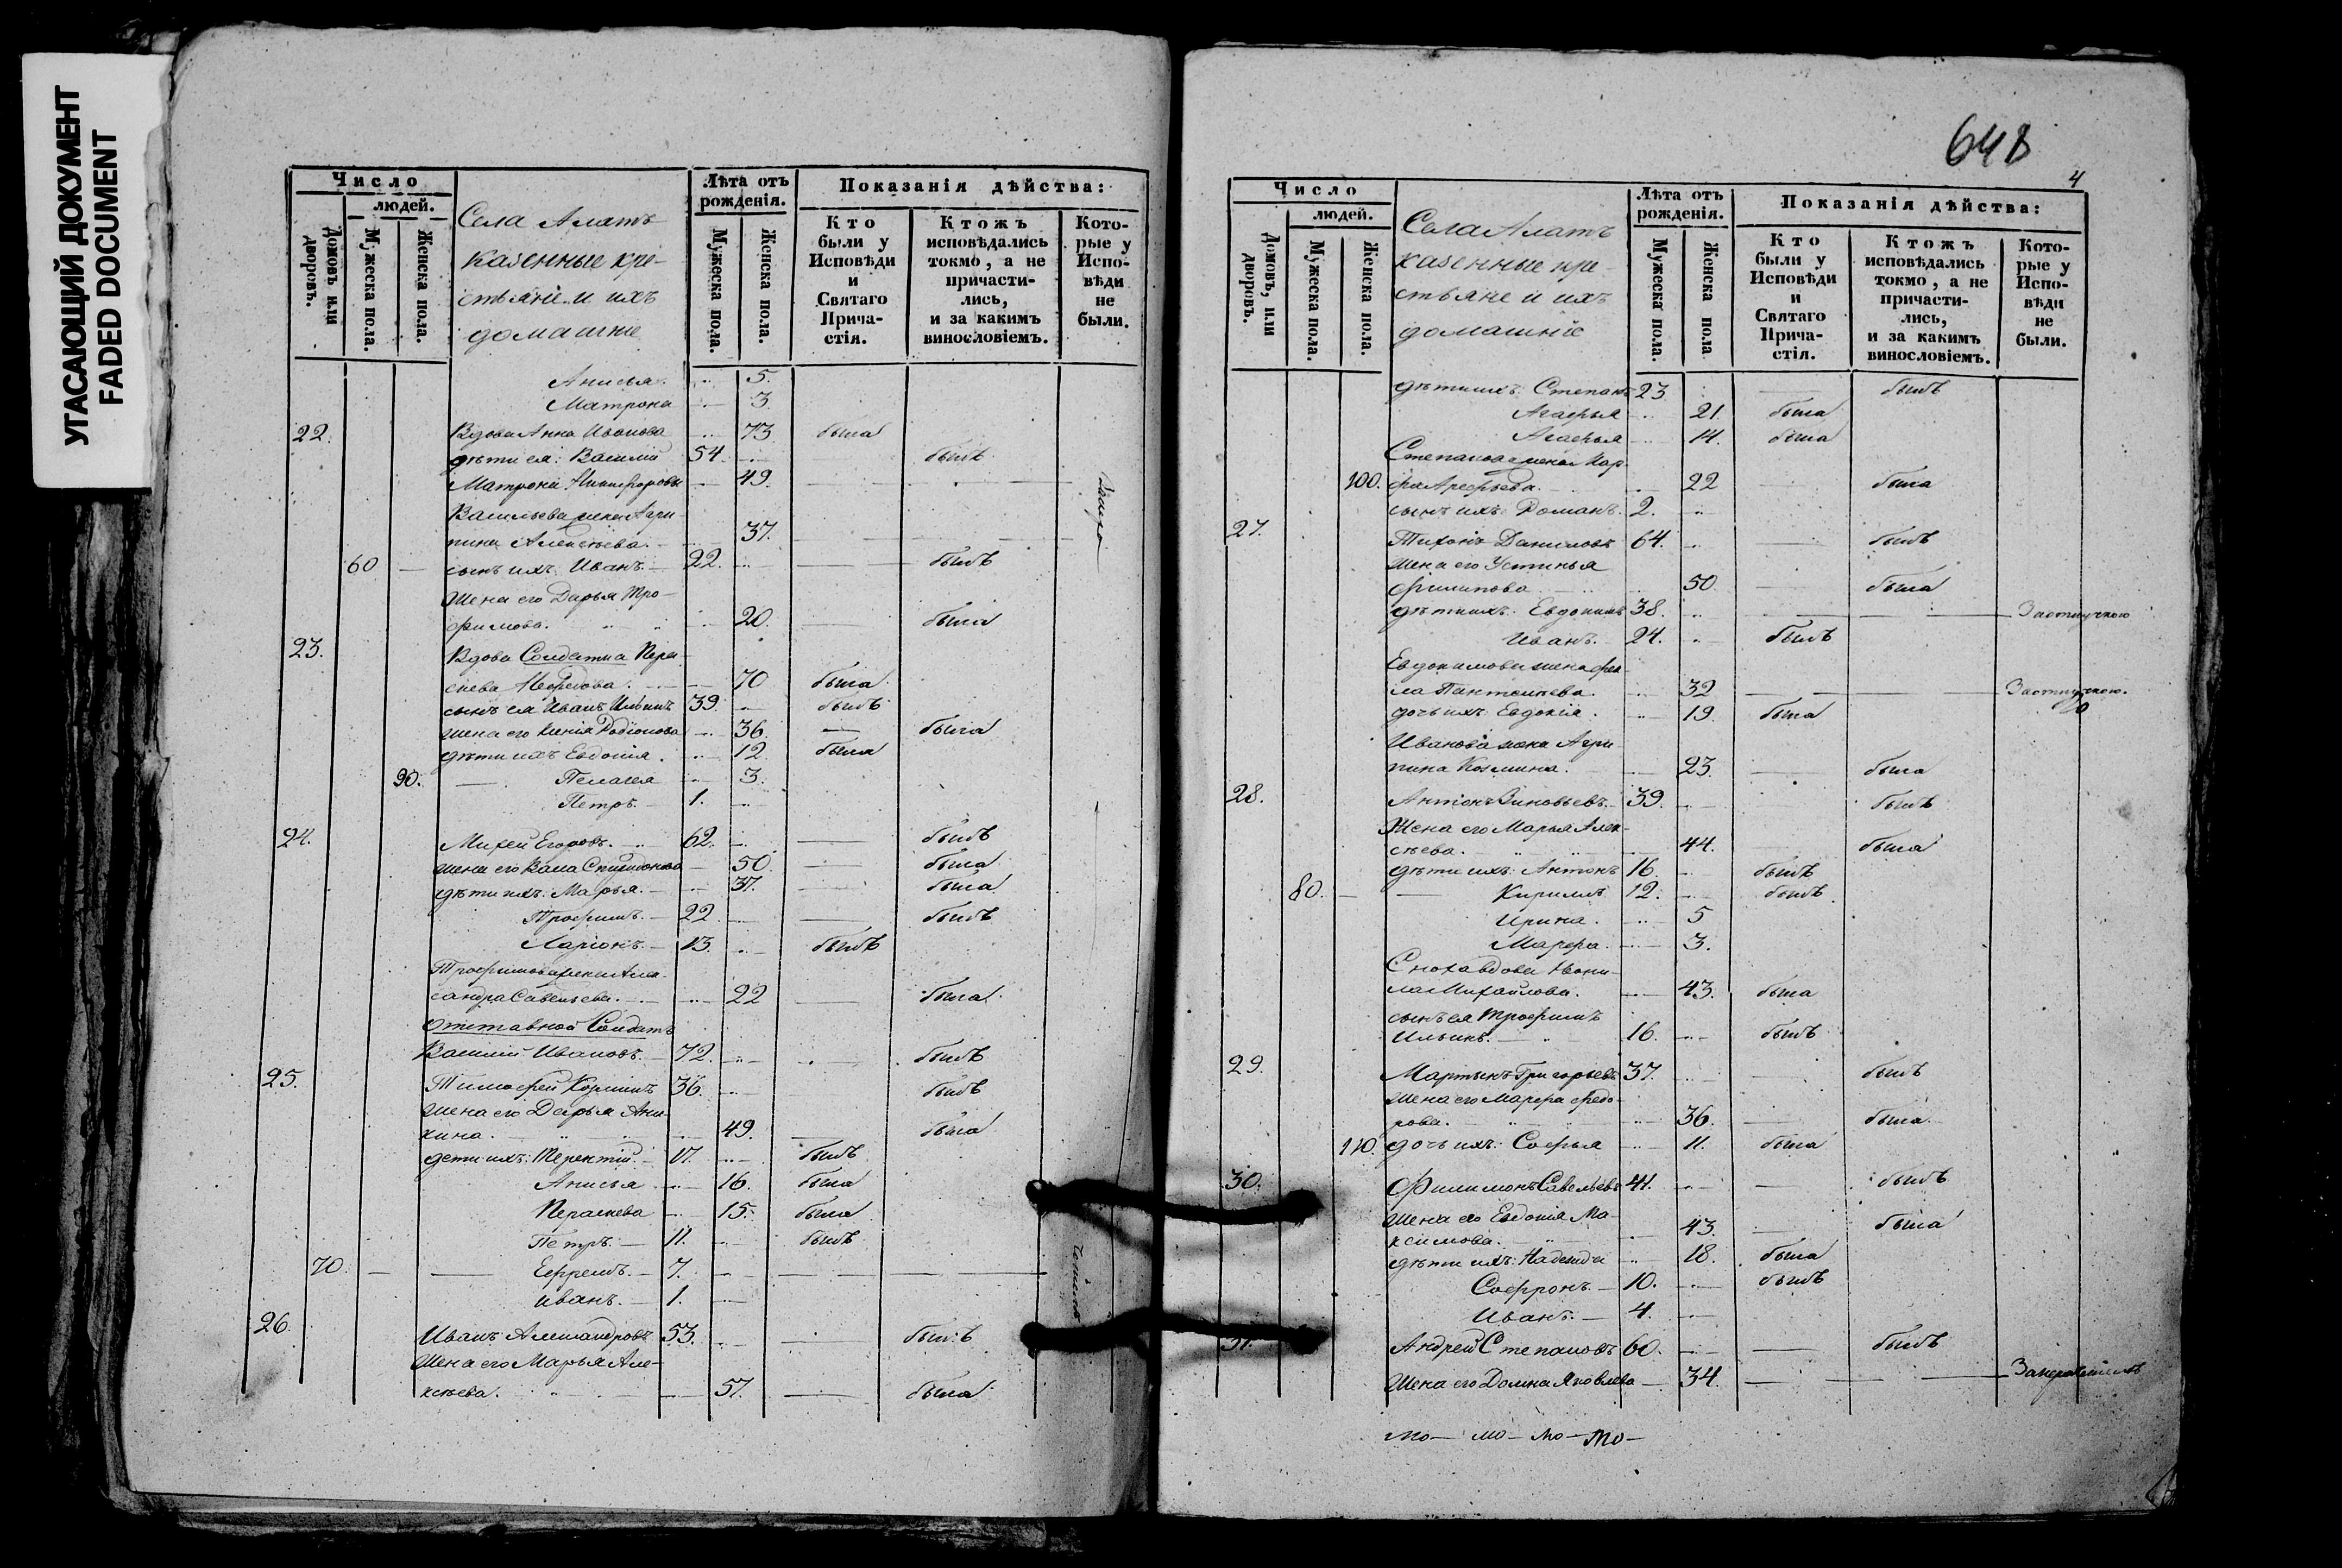 УГАСАЮЩИЙ ДОКУМЕНТ
FADED DOCUMENT
Число
людей.
Домовъ или дворовъ.
Мужеска пола.
Женска пола.
Села Алатъ
казенные кре-
стьяне и ихъ
домашніе
Лѣта отъ рожденія.
Мужеска пола.
Женска пола.
Показанія дѣйства:
Кто были у Исповѣди и Святаго Прича-стія.
Ктожъ исповѣдались токмо, а не причасти-лись, и за какимъ винословіемъ.
Кото-рые у Испо-вѣди не были.
Анисья 5.
Матрона 3.
22. Вдова Анна Иванова 73 была
дѣти ея: Василій 54 былъ
Матрона 49.
Васильева жена Агри-
пина Алексѣева. 37.
60 сынъ ихъ Иванъ 22. былъ
Жена его Дарья Тро-
фимова. 20. была
23. Вдова Солдатка Пара-
скева Нефедова. 70 была
сынъ ея Иванъ Ильинъ 39. былъ
жена его Ксенія Родіонова 36. была
дѣти ихъ Евдокія. 12. была
90. Пелагея 3.
Петръ. 1.
24. Михей Егоровъ. 62. былъ
жена его 50. была
дѣти ихъ: Марья. 37. была
Трофимъ. 22. былъ
Ларіонъ. 13. былъ
Трофимова жена Алек-
сандра Савельева. 22 была
Отставной Солдатъ
Василій Ивановъ. 72. былъ
25. Тимофей 36. былъ
жена его Дарья Ани-
кина. 49. была
дети ихъ: Терентій. 17. былъ
Анисья 16. была
Параскева 15. была
Петръ. 11. былъ
70. Ефремъ. 7.
Иванъ. 1.
26. Иванъ Александровъ 53. былъ
Жена его Марья Але-
ксѣева. 57. была
648
4
Число
людей.
Домовъ, или дворовъ.
Мужеска пола.
Женска пола.
Села Алатъ
казенные кре-
стьяне и ихъ
домашніе
Лѣта отъ рожденія.
Мужеска пола.
Женска пола
Показанія дѣйства:
Кто были у Исповѣди и Святаго Прича-стія.
Ктожъ исповѣдались токмо, а не причасти-лись, и за какимъ винословіемъ.
Кото-рые у Испо-вѣди не были.
дѣти ихъ: Степанъ 23. былъ
Агафья 21. была
Агафья 14. была
Степанова жена Мар-
100. фа Арефьева. 22 была
сынъ ихъ: Романъ. 2.
27. Тихонъ Даниловъ 64. былъ
Жена его Устинья
Филипова 50. была
дѣти ихъ: Евдокимъ 38. За отлучкою
Иванъ. 24. былъ
Евдокимова жена Фек-
ла Пантелѣева. 32 За отлучкою.
дочь ихъ: Евдокія. 19. была
Иванова жена Агри-
пина Козмина. 23. была
28. Антонъ Зиновьевъ. 39. былъ
Жена его Марья Алек-
сѣева. 44. была
дѣти ихъ: Антонъ 16. былъ
80. Кирилъ 12. былъ
Ирина. 5
Марфа. 3.
Сноха вдова Неони-
ла Михайлова. 43. была
сынъ ея Трофимъ
Ильинъ. 16. былъ
29. Мартынъ Григорьевъ 37. былъ
Жена его Марфа Федо-
рова. 36. была
110. дочь ихъ: Софья 11. была
30. Филимонъ Савельевъ 41. былъ
Жена его Евдокія Ма-
ксимова. 43. была
дѣти ихъ: Надежда 18. была
Софронъ. 10. былъ
Иванъ. 4.
31. Андрей Степановъ 60. былъ
Жена его Домна Яковлева 34.
то— мо— мо— то—